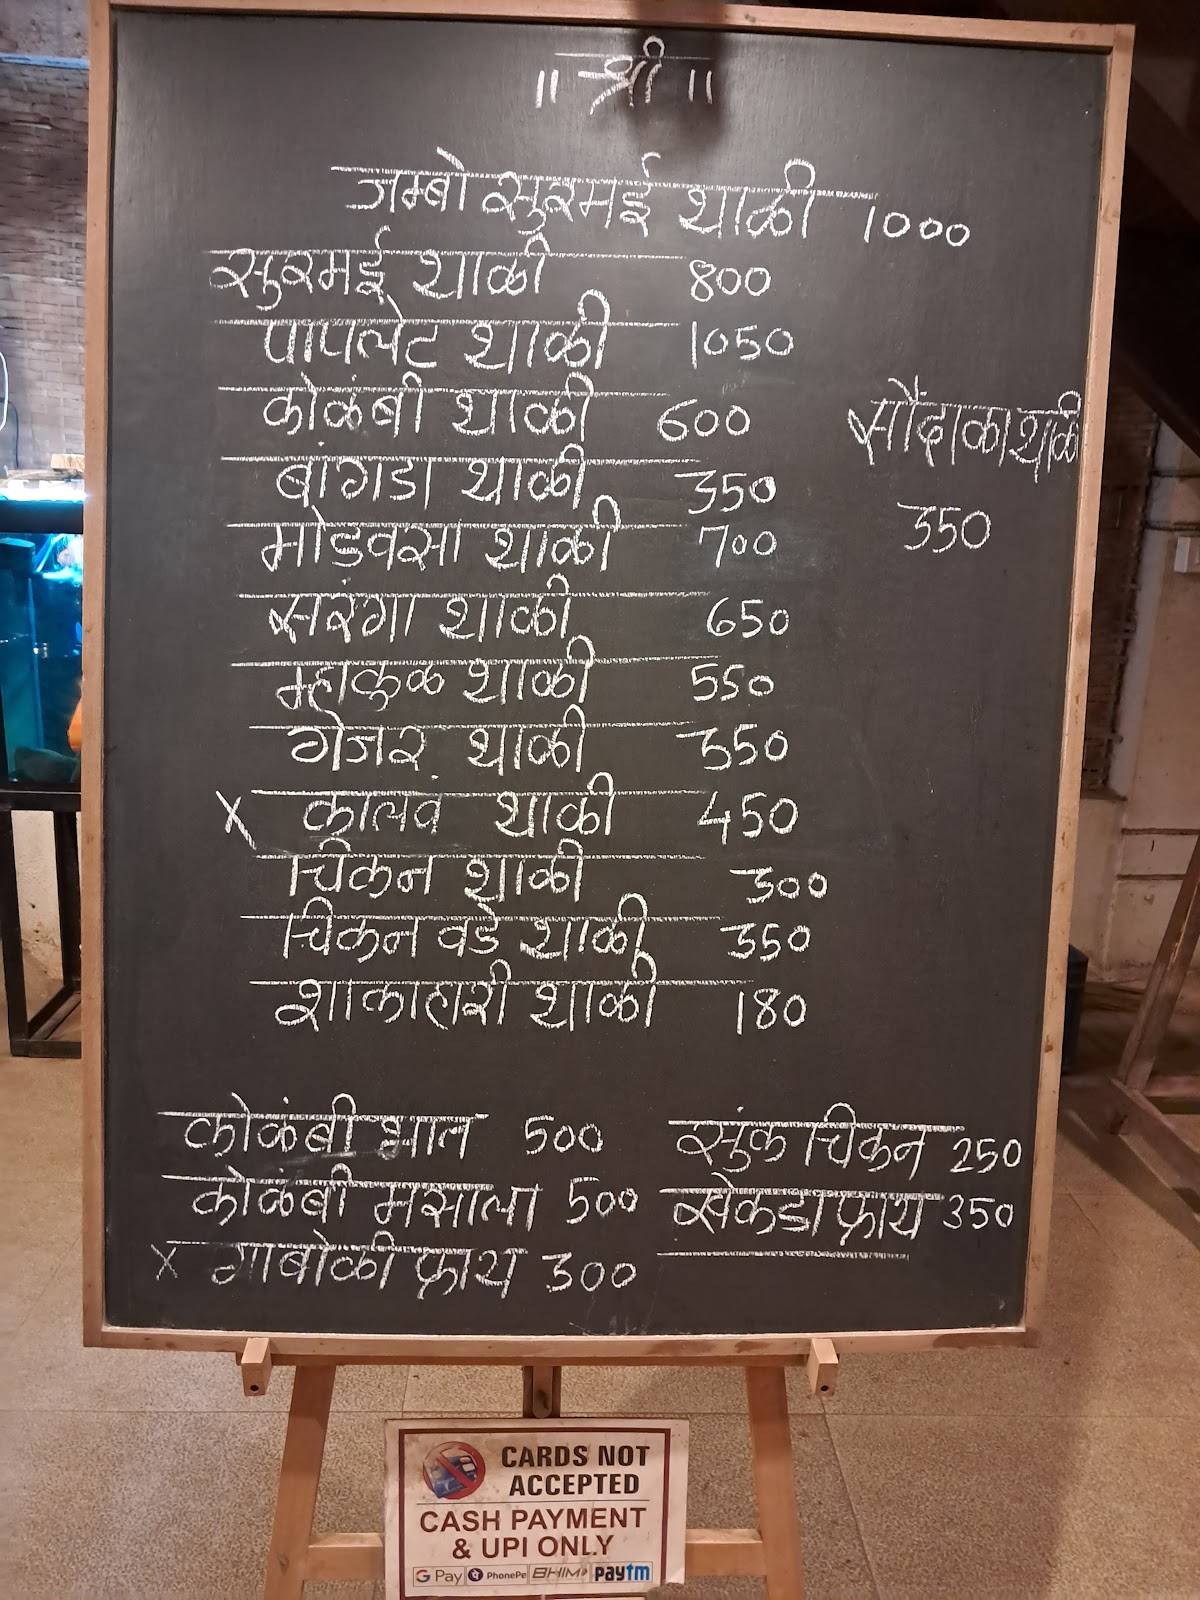 ॥ श्री ॥
जम्बो सुरमई थाळी 1000
सुरमई थाळी 800
पापलेट थाळी 1050
कोळंबी थाळी 600
सौंदाळा थाळी
बांगडा थाळी 350
350
मोडवसा थाळी 700
सरंगा थाळी 650
म्हाकुळ थाळी 550
गेजर थाळी 350
X कालवं थाळी 450
चिकन थाळी 300
चिकन वडे थाळी 350
शाकाहारी थाळी 180
कोळंबी भात 500
सुंक चिकन 250
कोळंबी मसाला 500
खेकडा फ्राय 350
X गाबोळी फ्राय 300
CARDS NOT
ACCEPTED
CASH PAYMENT
& UPI ONLY
G Pay PhonePe BHIM paytm